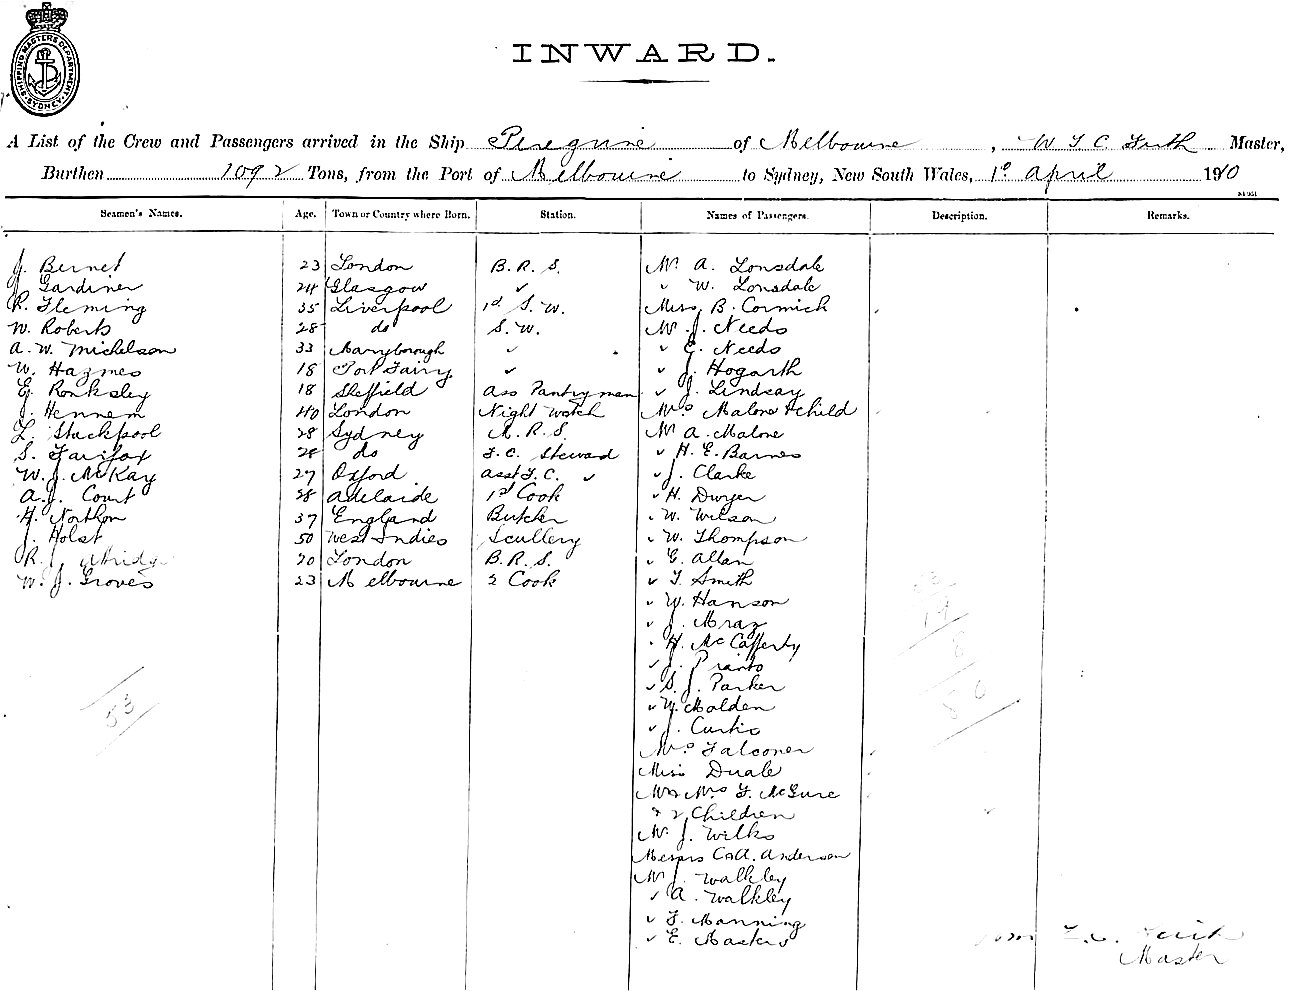 SHIPPING MASTERS DEPARTMENT SYDNEY
INWARD.
A List of the Crew and Passengers arrived in the Ship Peregrine of Melbourne, W T C Firth Master,
Burthen 1092 Tons, from the Port of Melbourne to Sydney, New South Wales, 1st April 1910
Seamen's Names. Age. Town or Country where Born. Station. Names of Passengers. Description. Remarks.
J. Bernet 23 London B. R. S. Mr A. Lonsdale
J. Gardiner 24 Glasgow ✓ ✓ W. Lonsdale
R. Fleming 35 Liverpool 1st S. W. Miss B. Cormick
W. Roberts 28 do S. W. Mr J. Needs
A. W. Michelson 33 Maryborough ✓ ✓ E. Needs
W. Haymes 18 Port Fairy ✓ ✓ J. Hogarth
E. Ronksley 18 Sheffield Ass Pantryman ✓ J. Lindsay
J. Hennem 40 London Night Watch Mrs Malone & child
L. Stackpool 28 Sydney M. R. S. Mr A. Malone
S. Fairfax 28 do F. C. Steward ✓ H. E. Barnes
W. J. McKay 27 Oxford Asst F. C. ✓ ✓ J. Clarke
A. J. Court 28 Adelaide 1st Cook ✓ H. Dwyer
H. Northon 37 England Butcher ✓ W. Wilson
J. Holst 50 West Indies Scullery ✓ W. Thompson
R. 20 London B. R. S. ✓ G. Allan
W. J. Groves 23 Melbourne 2 Cook ✓ T. Smith
✓ W. Hanson
✓ J. Mraz
✓ H. McCafferty
✓ J.
✓ S. J. Parker
✓ W. Malden
✓ J. Curtis
53
Mrs Falconer
Miss Duale
Mr & Mrs F. McGure
& 2 Children
Mr J. Wilks
Messrs C & A. Anderson
Mr J. Walkley
✓ A. Walkley
✓ F. Manning
✓ E. Masters
Master